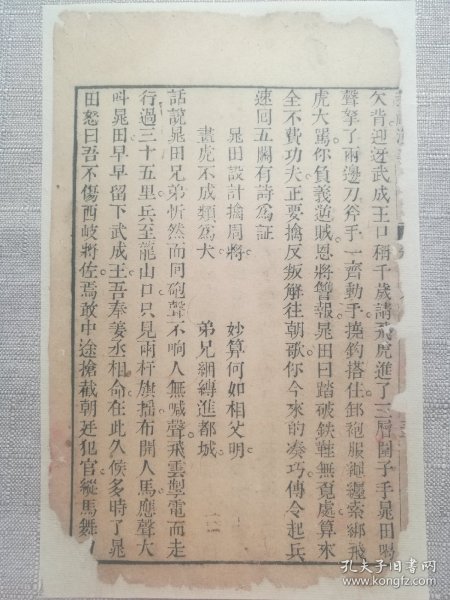 欠背迎迓武成王口稱千歲請飛虎進了三層圍子手晁田喝
聲拏了兩邊刀斧手一齊動手撓鈎搭住卸袍服繩纏索綁飛
虎大罵你負義逆賊恩將讐報晁田曰踏破鉄鞋無覓處算來
全不費功夫正要擒反叛解往朝歌你今來的凑巧傳令起兵
速回五關有詩爲証
晁田設計擒周將 妙算何如相父明
畫虎不成類爲犬 弟兄綑縛進都城
話說晁田兄弟忻然而囘砲聲不响人無喊聲飛雲掣電而走
行過三十五里兵至龍山口只見兩杆旗搖布開人馬應聲大
呌晁田早早留下武成王吾奉姜丞相命在此久候多時了晁
田怒曰吾不傷西岐將佐焉敢中途搶截朝廷犯官縱馬舞
孔夫子旧书网
book.kongfz.com